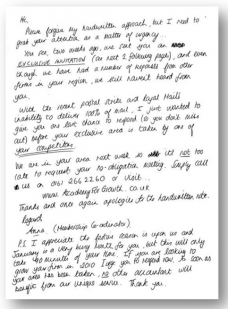 Hi,
Please forgive my handwritten approach, but I need to
grab your attention as a matter of urgency...
You see, two weeks ago, we sent you an
EXCLUSIVE INVITATION (see next 2 following pages), and even
though we have had a number of requests from other
firms in your region, we still haven't heard from
you.
With the recent postal strike and Royal Mail's
inability to deliver 100% of mail, I just wanted to
give you one last chance to respond (so you don't miss
out) before your exclusive area is taken by one of
your competitors.
We are in your area next week so it's not too
late to request your no-obligation meeting. Simply call
us on 0161 266 2260 or visit...
www.AcademyForGrowth.co.uk
Thanks and once again apologies for the handwritten note.
Regards
Anna (Membership Co-ordinator)
P.S. I appreciate the festive season is upon us and
January is a very busy month for you, but this will only
take 40 minutes of your time. If you are looking to
grow your firm in 2010 I urge you to respond now. As soon as
your area has been taken, no other accountant will
benefit from our unique service. Thank you.